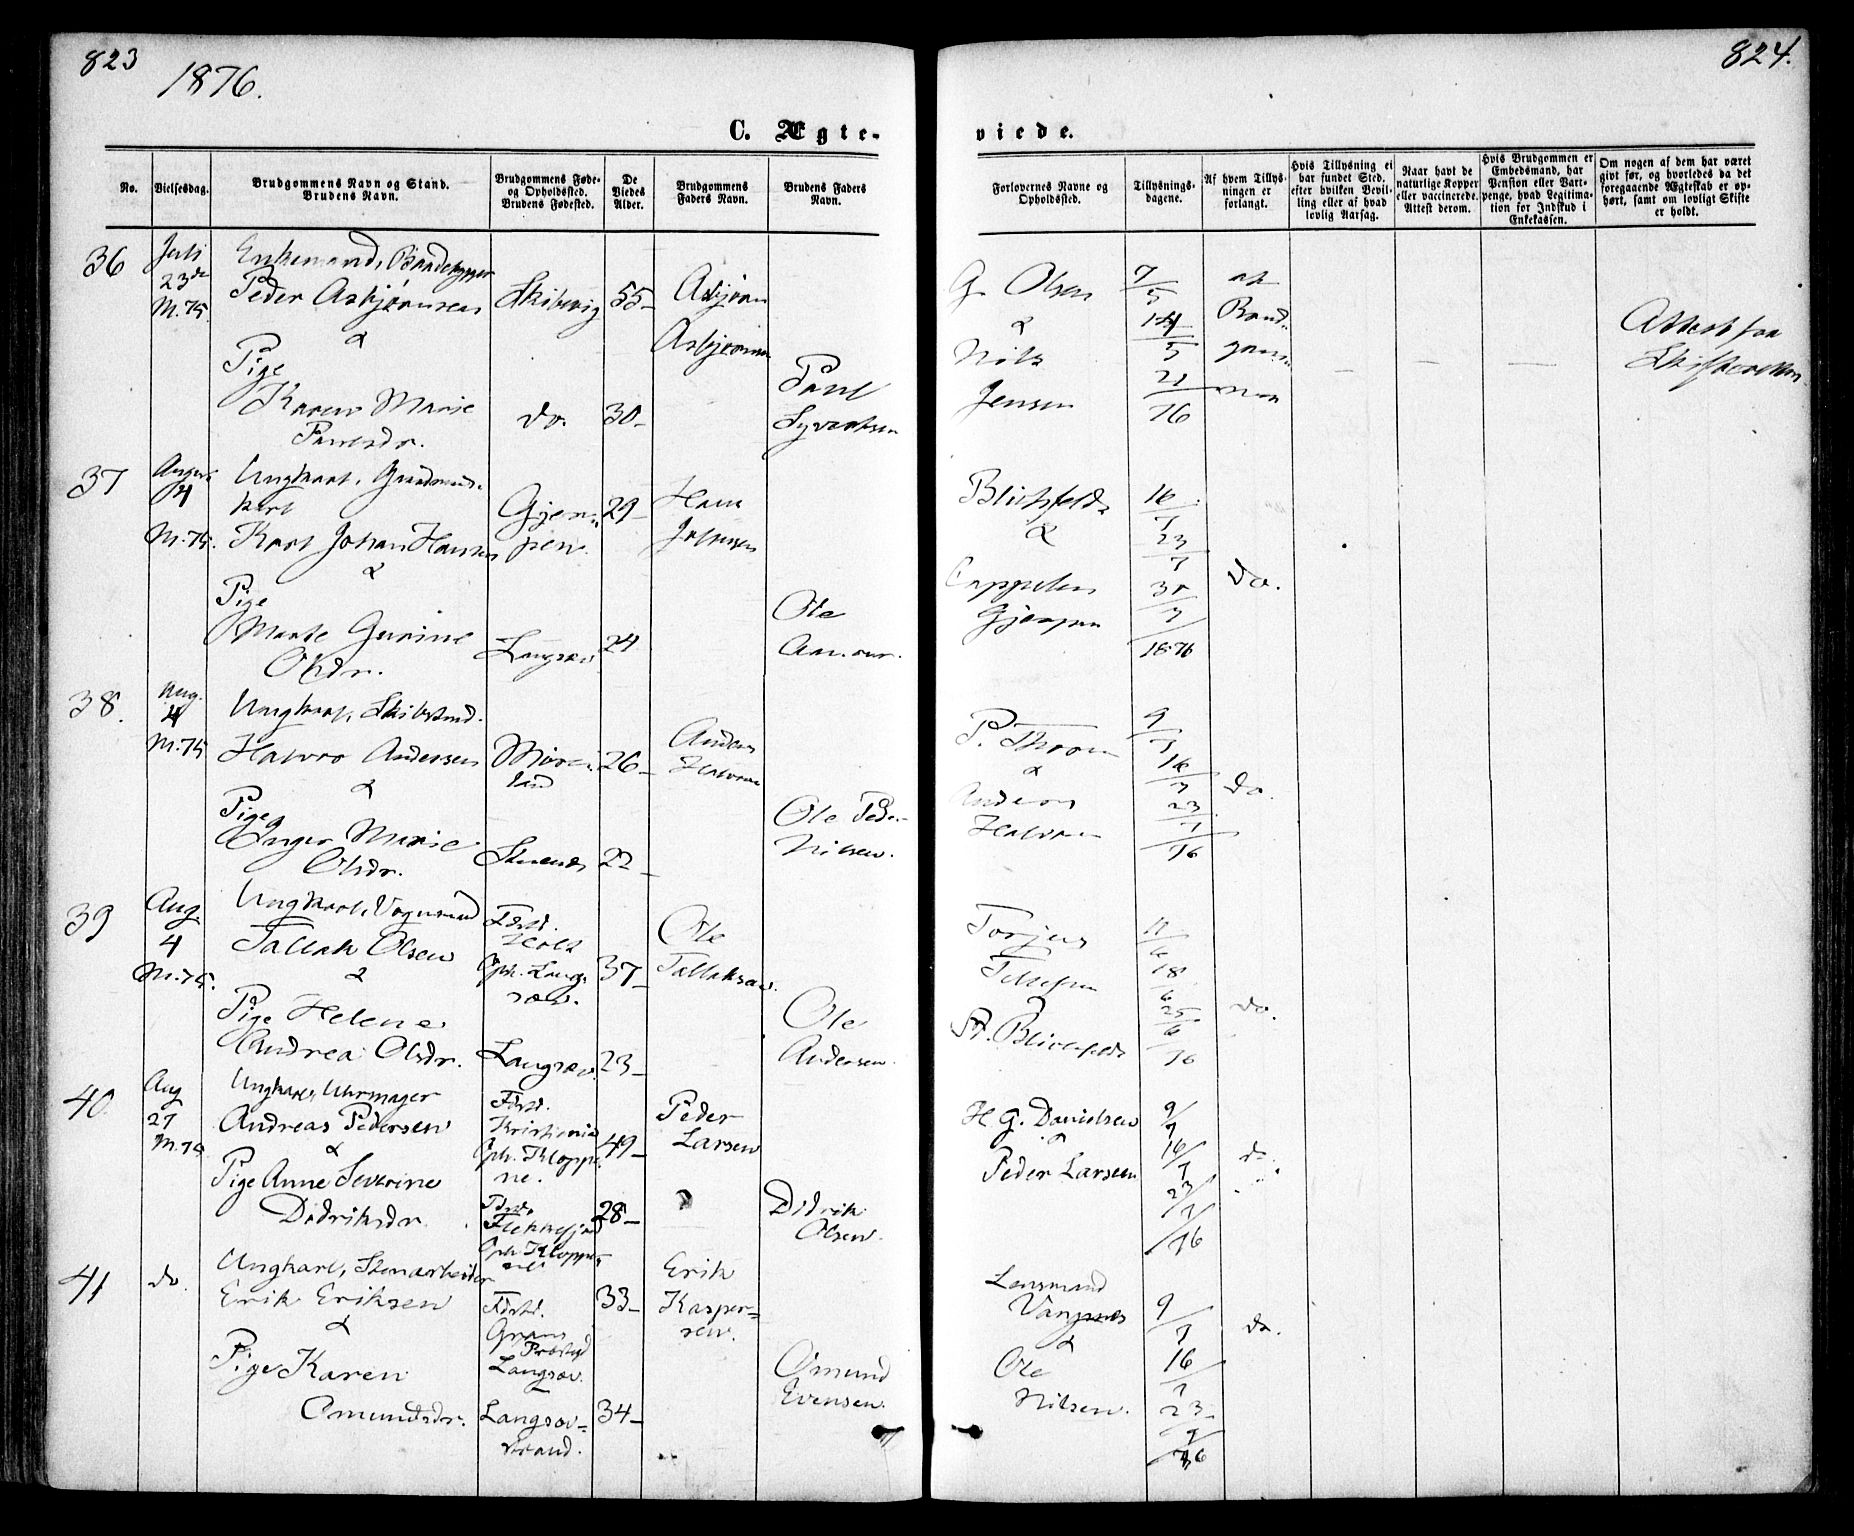 823
1876.
C. Ægte-
No.
Vielsesdag.
Brudgommens Navn og Stand.
Brudens Navn.
Brudgommens Føde-
og Opholdssted.
Brudens Fødested.
De
Viedes
Alder.
Brudgommens
Faders Navn.
Brudens Faders
Navn.
36
Juli
23de
M. 75.
Enkemand,
Peder Asbjørnsen
&
Pige
Karen Marie
Paulsdr.
do.
55-
30-
Asbjørn
Paul
37
August
4
M. 75.
Ungkarl,
Karl Johan Hansen
&
Pige
Marte Gurine
Olsdr.
Gjer-
pen.
Langsæv
29-
24
Hans
Ole
38.
Aug.
4
M. 75
Ungkarl,
Halvor Andersen
&
Pige
Inger Marie
Olsdr.
26-
22-
Anders
Ole Peder
Nilsen.
39
Aug.
4
M. 75.
Ungkarl,
Tallak Olsen
&
Pige Helene
Andrea Olsdr.
Fdsted.
Holt
Oph. Lang-
sæv.
Langsæv.
37-
23-
Ole
Tallaksen.
Ole
Andersen.
40
Aug
27
M. 75
Ungkarl, Uhrmager
Andreas Pedersen
&
Pige Anne Severine
Didriksdr.
Fdsted.
Kristiania
Oph. Kloppe-
ne.
Fdsted.
Flekkefjord
Oph. Kloppe-
ne
49-
28-
Peder
Larsen
Didrik
Olsen.
41
do.
Ungkarl, Stenarbeider
Erik Eriksen
&
Pige Karen
Omundsdr.
Fdsted.
Grans
Prestegj
Langsæv.
Langsæv-
strand.
33-
34-
Erik
Kasper-
sen.
Omund
Evensen.
824.
viede.
Forlovernes Navne og
Opholdssted.
Tillysnings-
dagene.
Af hvem Tillys-
ningen er
forlangt.
Hvis Tillysning ei
har fundet Sted,
efter hvilken Bevil-
ling eller af hvad
lovlig Aarsag.
Naar havt de
naturlige Kopper
eller vaccinerede.
Attest derom.
Hvis Brudgommen er
Embedsmand, har
Pension eller Vart-
penge, hvad Legitima-
tion for Indskud i
Enkekassen.
Om nogen af dem har været
givt før, og hvorledes da det
foregaaende Ægteskab er op-
hørt, samt om lovligt Skifte
er holdt.
G. Olsen
&
Nils
Jensen
7/5
14/5
21
76
af
Brud-
gom-
men
Attest fra
Skifteretten.
Blichfeldt
&
Cappelen
Gjerpen
16/7
23/7
30/7
1876
Do.
&
Anders
Halvorsen
9/7
16/7
23/7
76
do.
Torjus
Tellefsen
11/6
18/6
25/6
76
do.
H. G. Danielsen
&
Peder Larsen
9/7
16/7
23/7
76
do.
Lensmand
Vangsnes
&
Ole
Nilsen.
9/7
16/7
23/7
76
do.